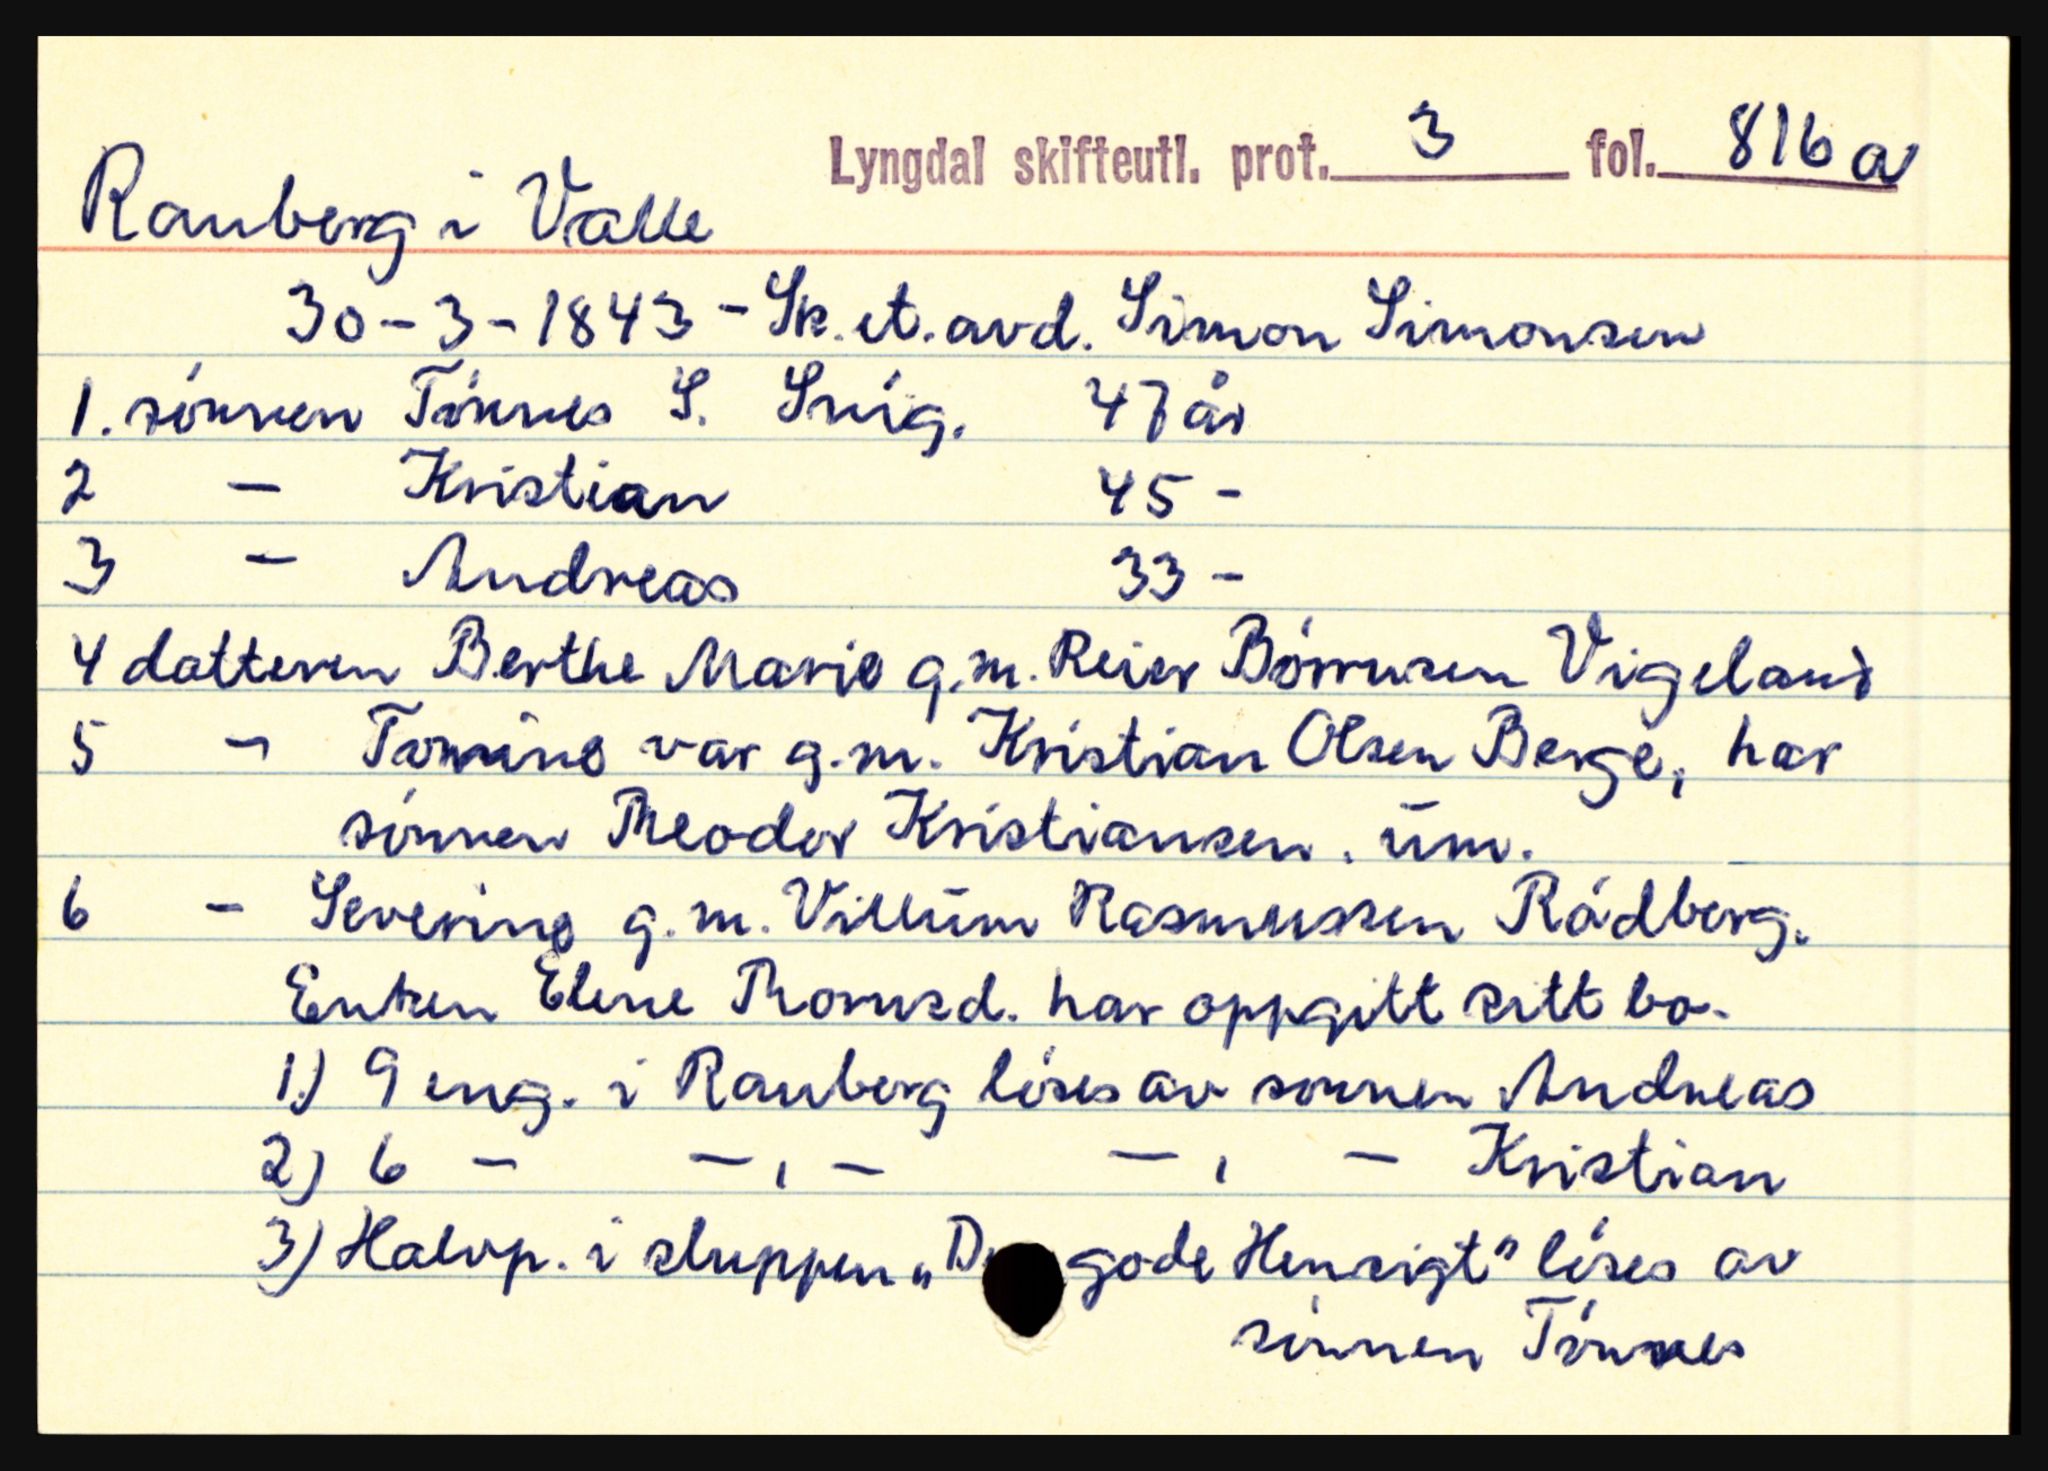 Lyngdal skifteutl. prot. 3 fol. 816 a
Rauberg i Valle
30-3-1843 - Sk. et. avd. Simon Simonsen
1. sónnen Tónnes S. Snig. 47 år
2 - Kristian 45 -
3 - Andreas 33 -
4 datteren Berthe Marie g.m. Reier Börrusen Vigeland
5 - Tomine var g.m. Kristian Olsen Berge, har
sónnen Theodor Kristiansen. um.
6 - Severine g.m. Villum Rasmussen Rádberg.
Enken Elene Thornsd. har oppgitt sitt bo.
1.) 9 eng. i Rauberg löses av sonnen Andreas
2) 6 - - , - - , - Kristian
3) Halvp. i sluppen „D gode Hensigt" löses av
sónnen Tónnes